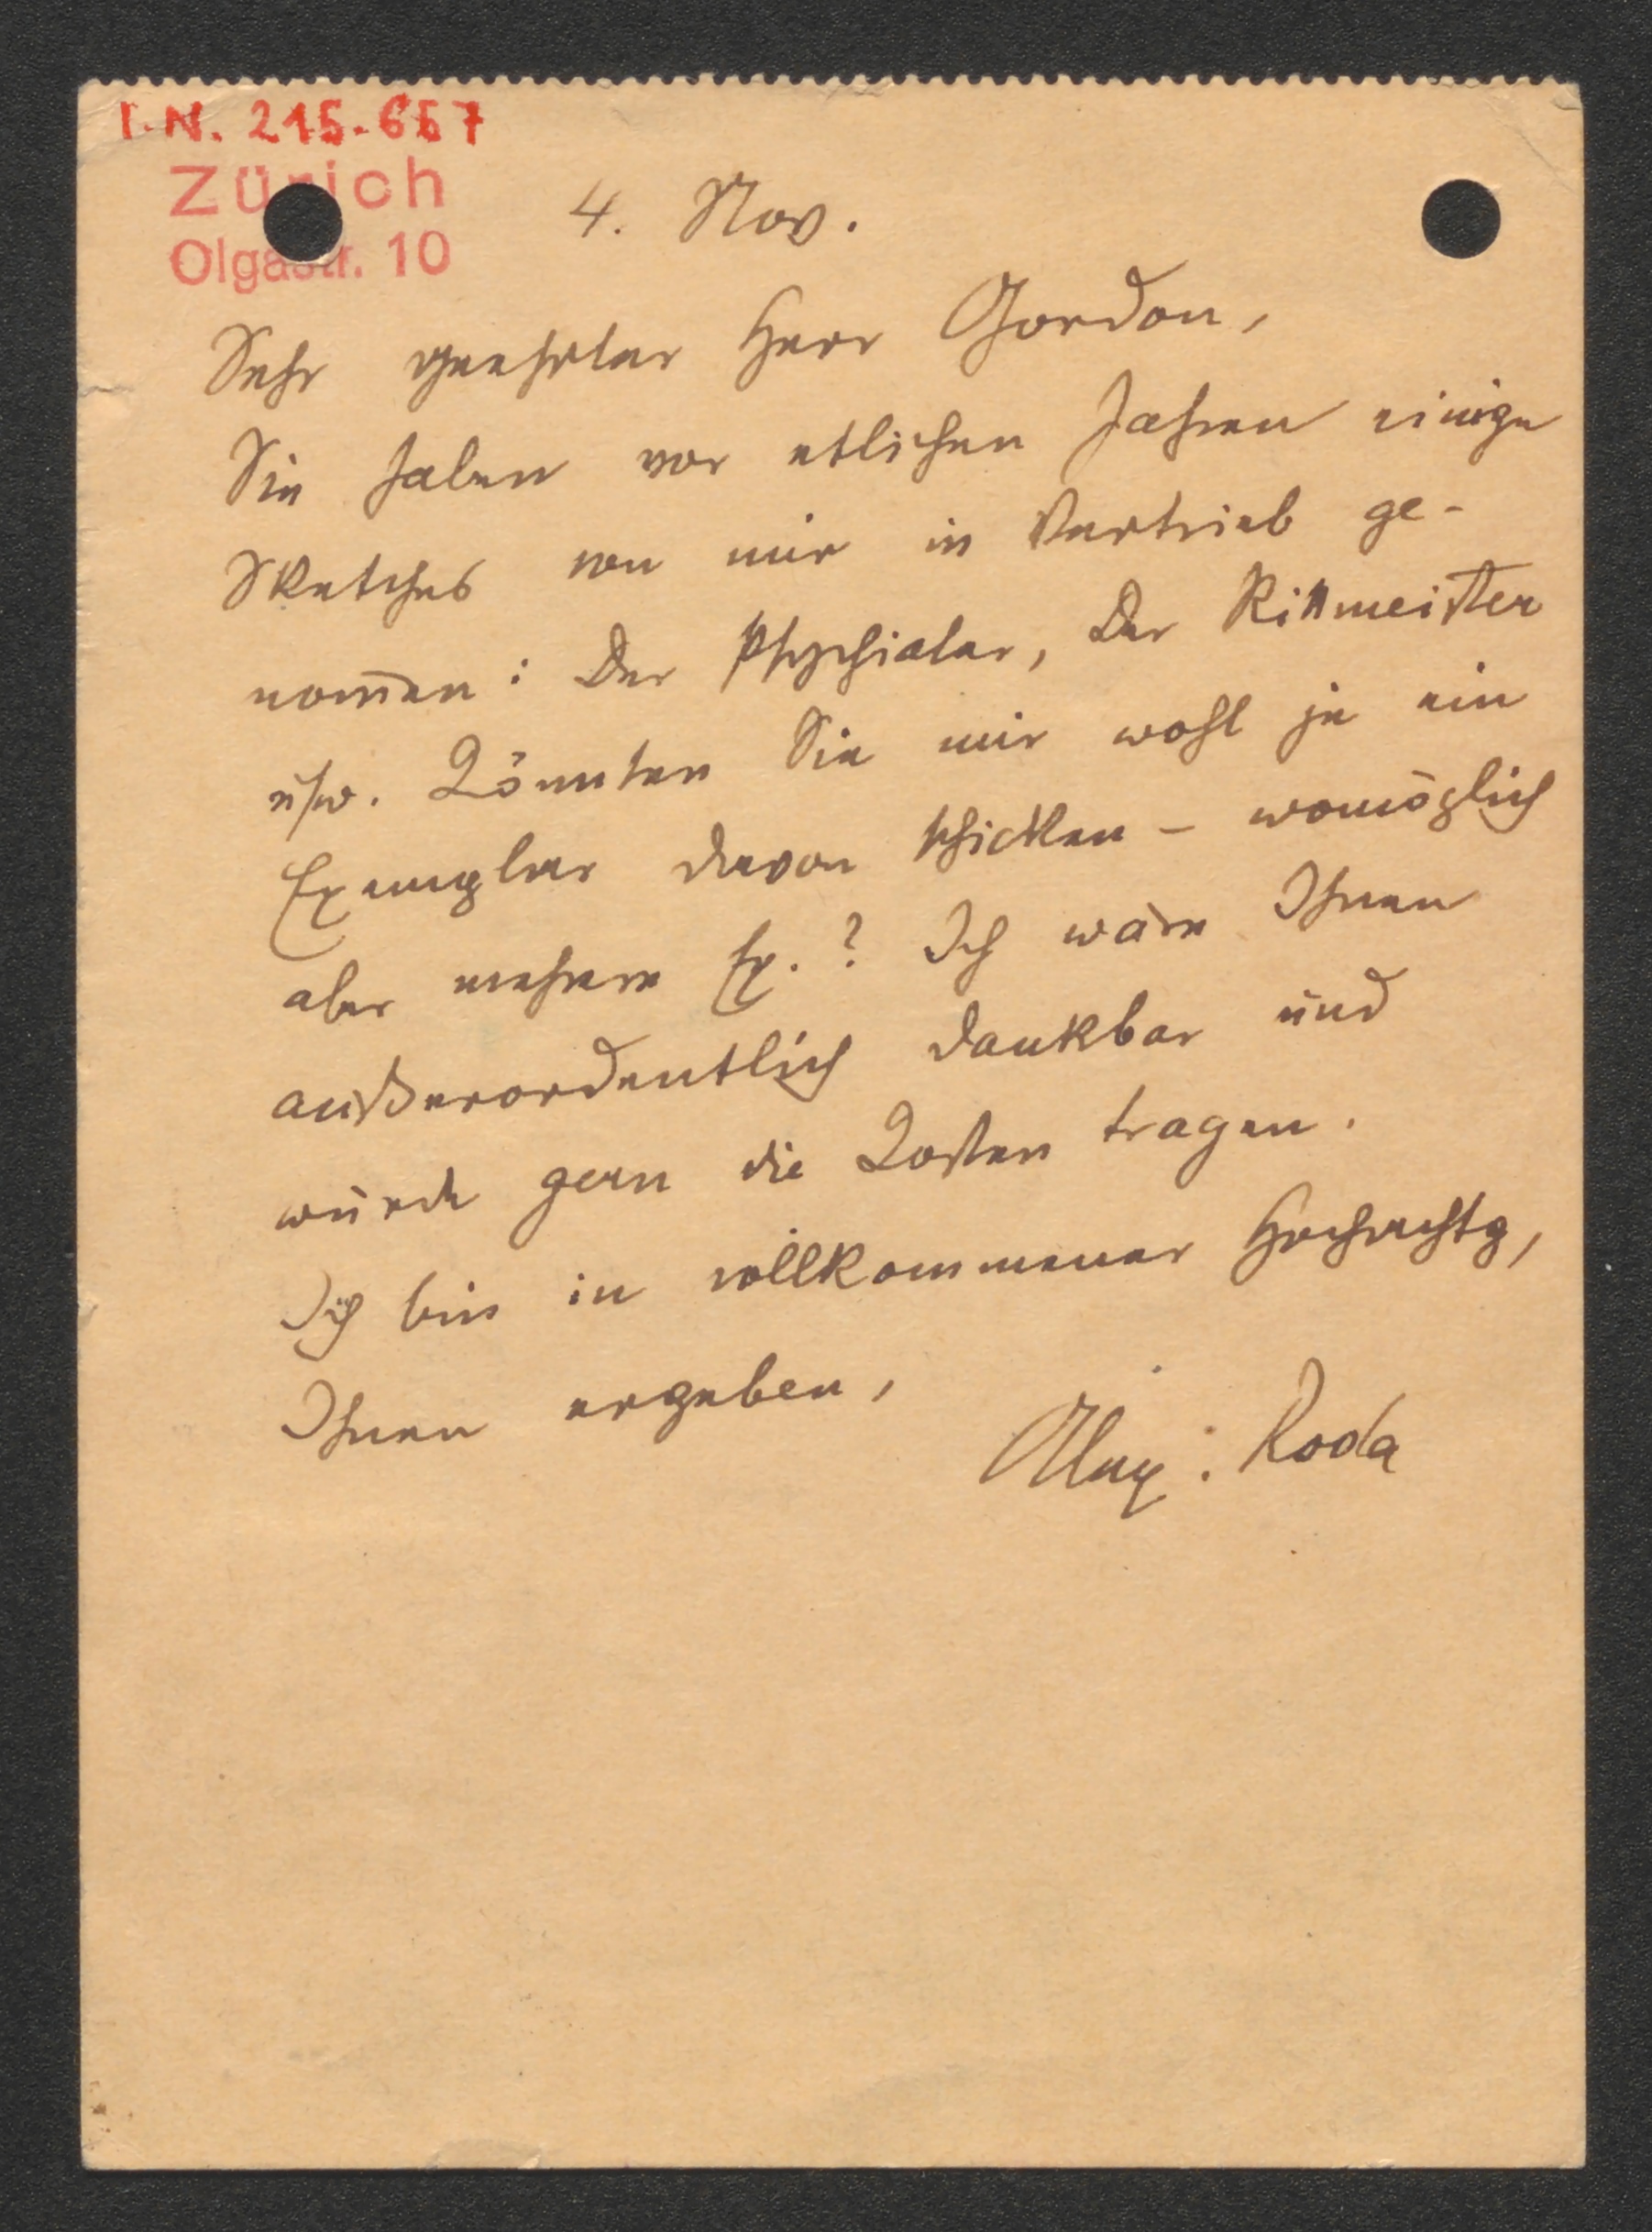 I.N. 215.657
Zürich
Olgastr. 10
4. Nov.
Sehr geehrter Herr Gordon,
Sie haben vor etlichen Jahren einige
Sketches von mir in Vertrieb ge-
nom̄en: Der Psychiater, Der Rittmeister
usw. Könnten Sie mir wohl je ein
Exemplar davon schicken – womöglich
aber mehrere Ex.? Ich wäre Ihnen
außerordentlich dankbar und
würde gern die Kosten tragen.
Ich bin in vollkommener Hochachtg,
Ihnen ergeben,
Alex: Roda